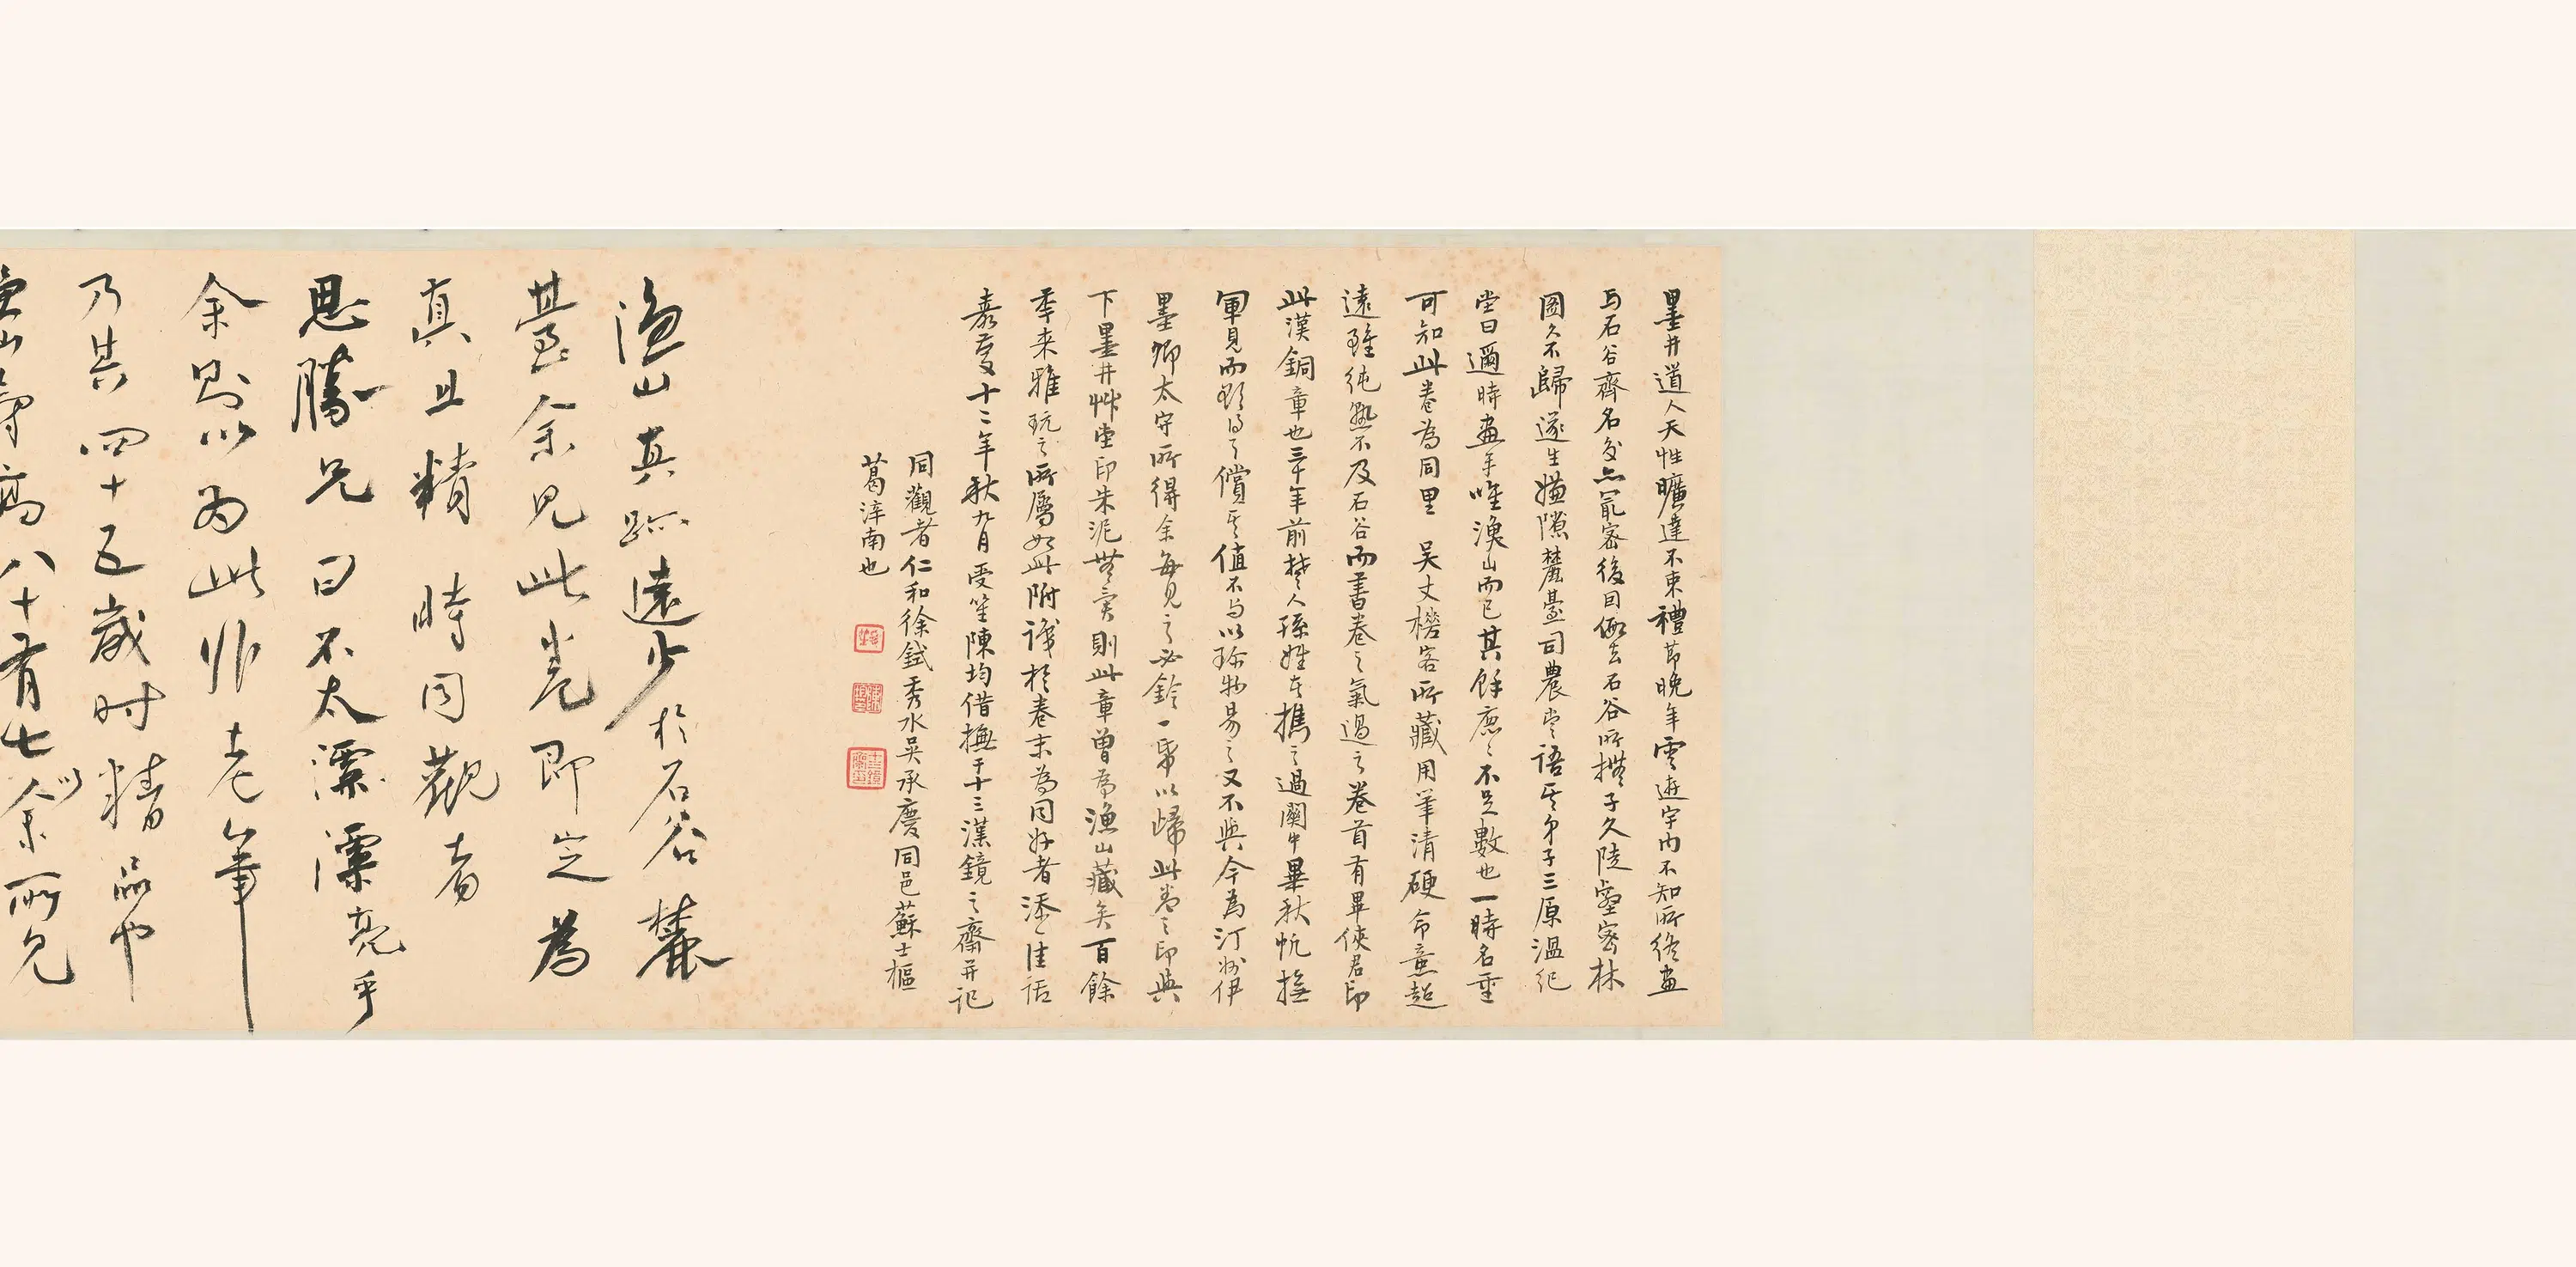 墨井道人天性曠達不束禮節晚年雲遊宇內不知所終畫
与石谷齊名交亦最密後因假去石谷所橅子久陡壑密林
圖久不歸遂生嫌隙麓臺司農嘗語其弟子三原溫紀
堂曰邇時畫手唯漁山而已其餘鹿鹿不足數也一時名重
可知此卷為同里吳丈榕客所藏用筆清硬命意超
遠雖純熟不及石谷而書卷之氣過之卷首有畢俠君印
此漢銅章也三十年前楚人孫姓者攜之過關中畢秋帆撫
軍見而欲得之償其值不与以珍物易之又不與今為汀州伊
墨卿太守所得余每見之必鈐一帋以歸此卷之印與
下墨井艸堂印朱泥無異則此章曾為漁山藏矣百餘
季來雅玩之所屬如此附識於卷末為同好者添一佳話
嘉慶十二年秋九月受笙陳均借橅于十三漢鏡之齋并記
同觀者仁和徐鉽秀水吳承慶同邑蘇士樞
葛淳南也
漁山真跡遠少於石谷麓
臺余見此卷即定為
真且精時同觀者
思勝兄曰不太漂漂亮乎
余則以為此非老筆
乃其四十五歲时精品也
漁山壽高八十有七余所見